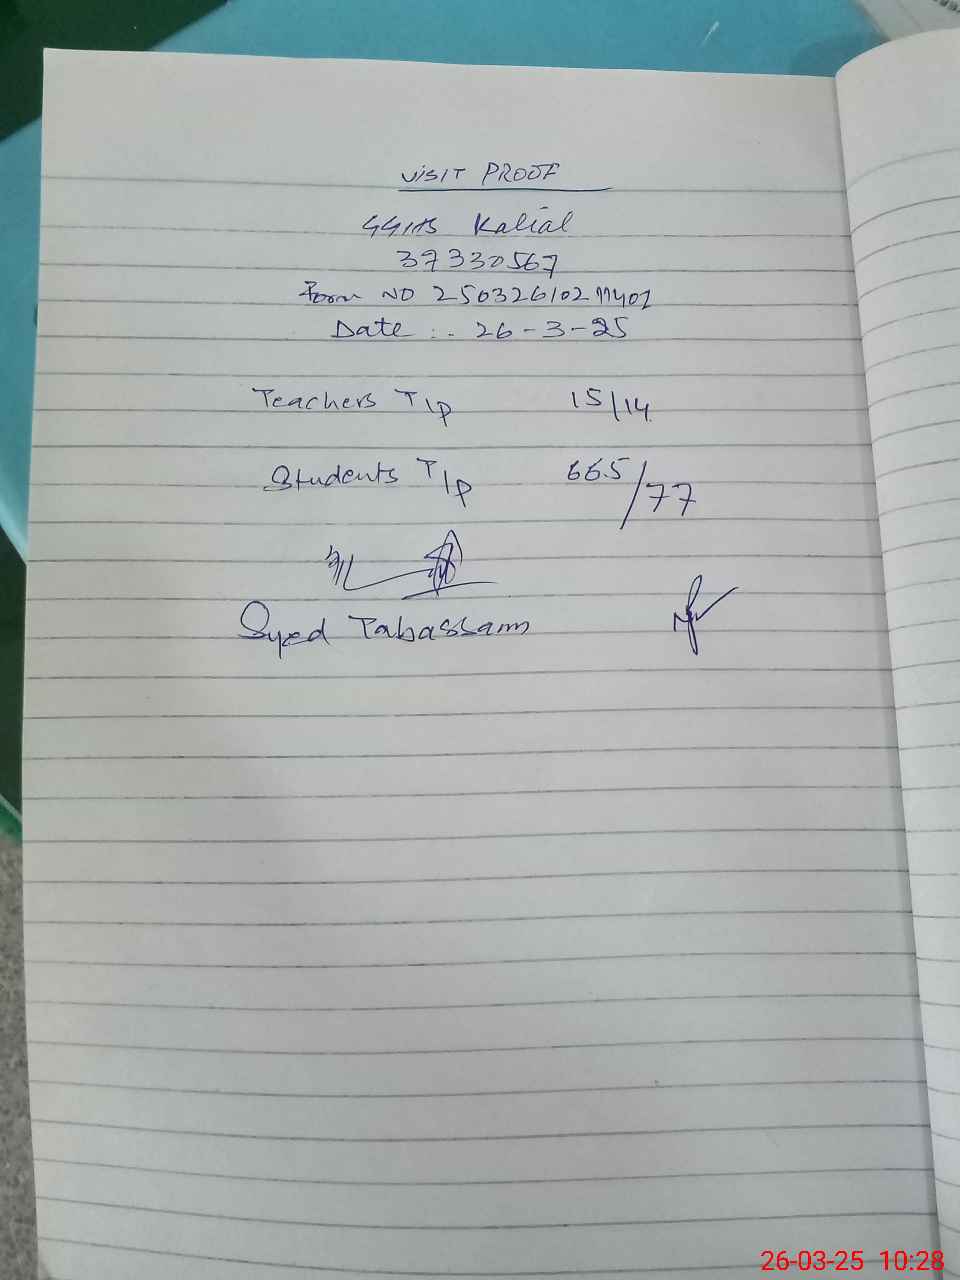 VISIT PROOF
GGHS Kalial
37330567
Form NO
Date :. 26-3-25
Teachers T/P 15/14
Students T/P 665/77
Syed Tabassam
26-03-25 10:28